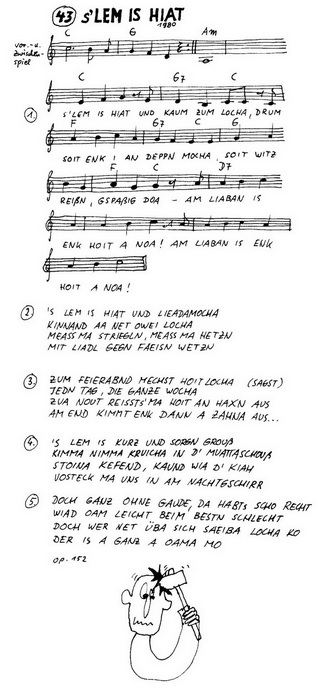 43 S'LEM IS HIAT
1980
C G Am
VOR- U. ZWISCHEN-SPIEL
C G7 C
1. S'LEM IS HIAT UND KAUM ZUM LOCHA, DRUM
F G7 C G
SOIT ENK I AN DEPPN MOCHA, SOIT WITZ
F C D7
REIßN, GSPAßIG DOA - AM LIABAN IS
ENK HOIT A NOA! AM LIABAN IS ENK
HOIT A NOA!
2. 'S LEM IS HIAT UND LIEADAMOCHA
KINNAND AA NET OWEI LOCHA
MEASS MA STRIEGLN, MEASS MA HETZN
MIT LIADL GEGN FAEISN WETZN
3. ZUM FEIERABND MECHST HOIT LOCHA (SAGST)
JEDN TAG, DIE GANZE WOCHA
ZUA NOUT REISSTS'MA HOIT AN HAXN AUS
AM END KIMMT ENK DANN A ZÄHNA AUS...
4. 'S LEM IS KURZ UND SORGN GROUß
KIMMA NIMMA KRUICHA IN D' MUATTASCHOUß
STOINA KEFEND, KAUND WIA D' KIAH
VOSTECK MA UNS IN AM NACHTGSCHIRR
5. DOCH GANZ OHNE GAUDE, DA HABTS SCHO RECHT
WIAD OAM LEICHT BEIM BESTN SCHLECHT
DOCH WER NET ÜBA SICH SAEIBA LOCHA KO
DER IS A GANZ A OAMA MO
OP. 152